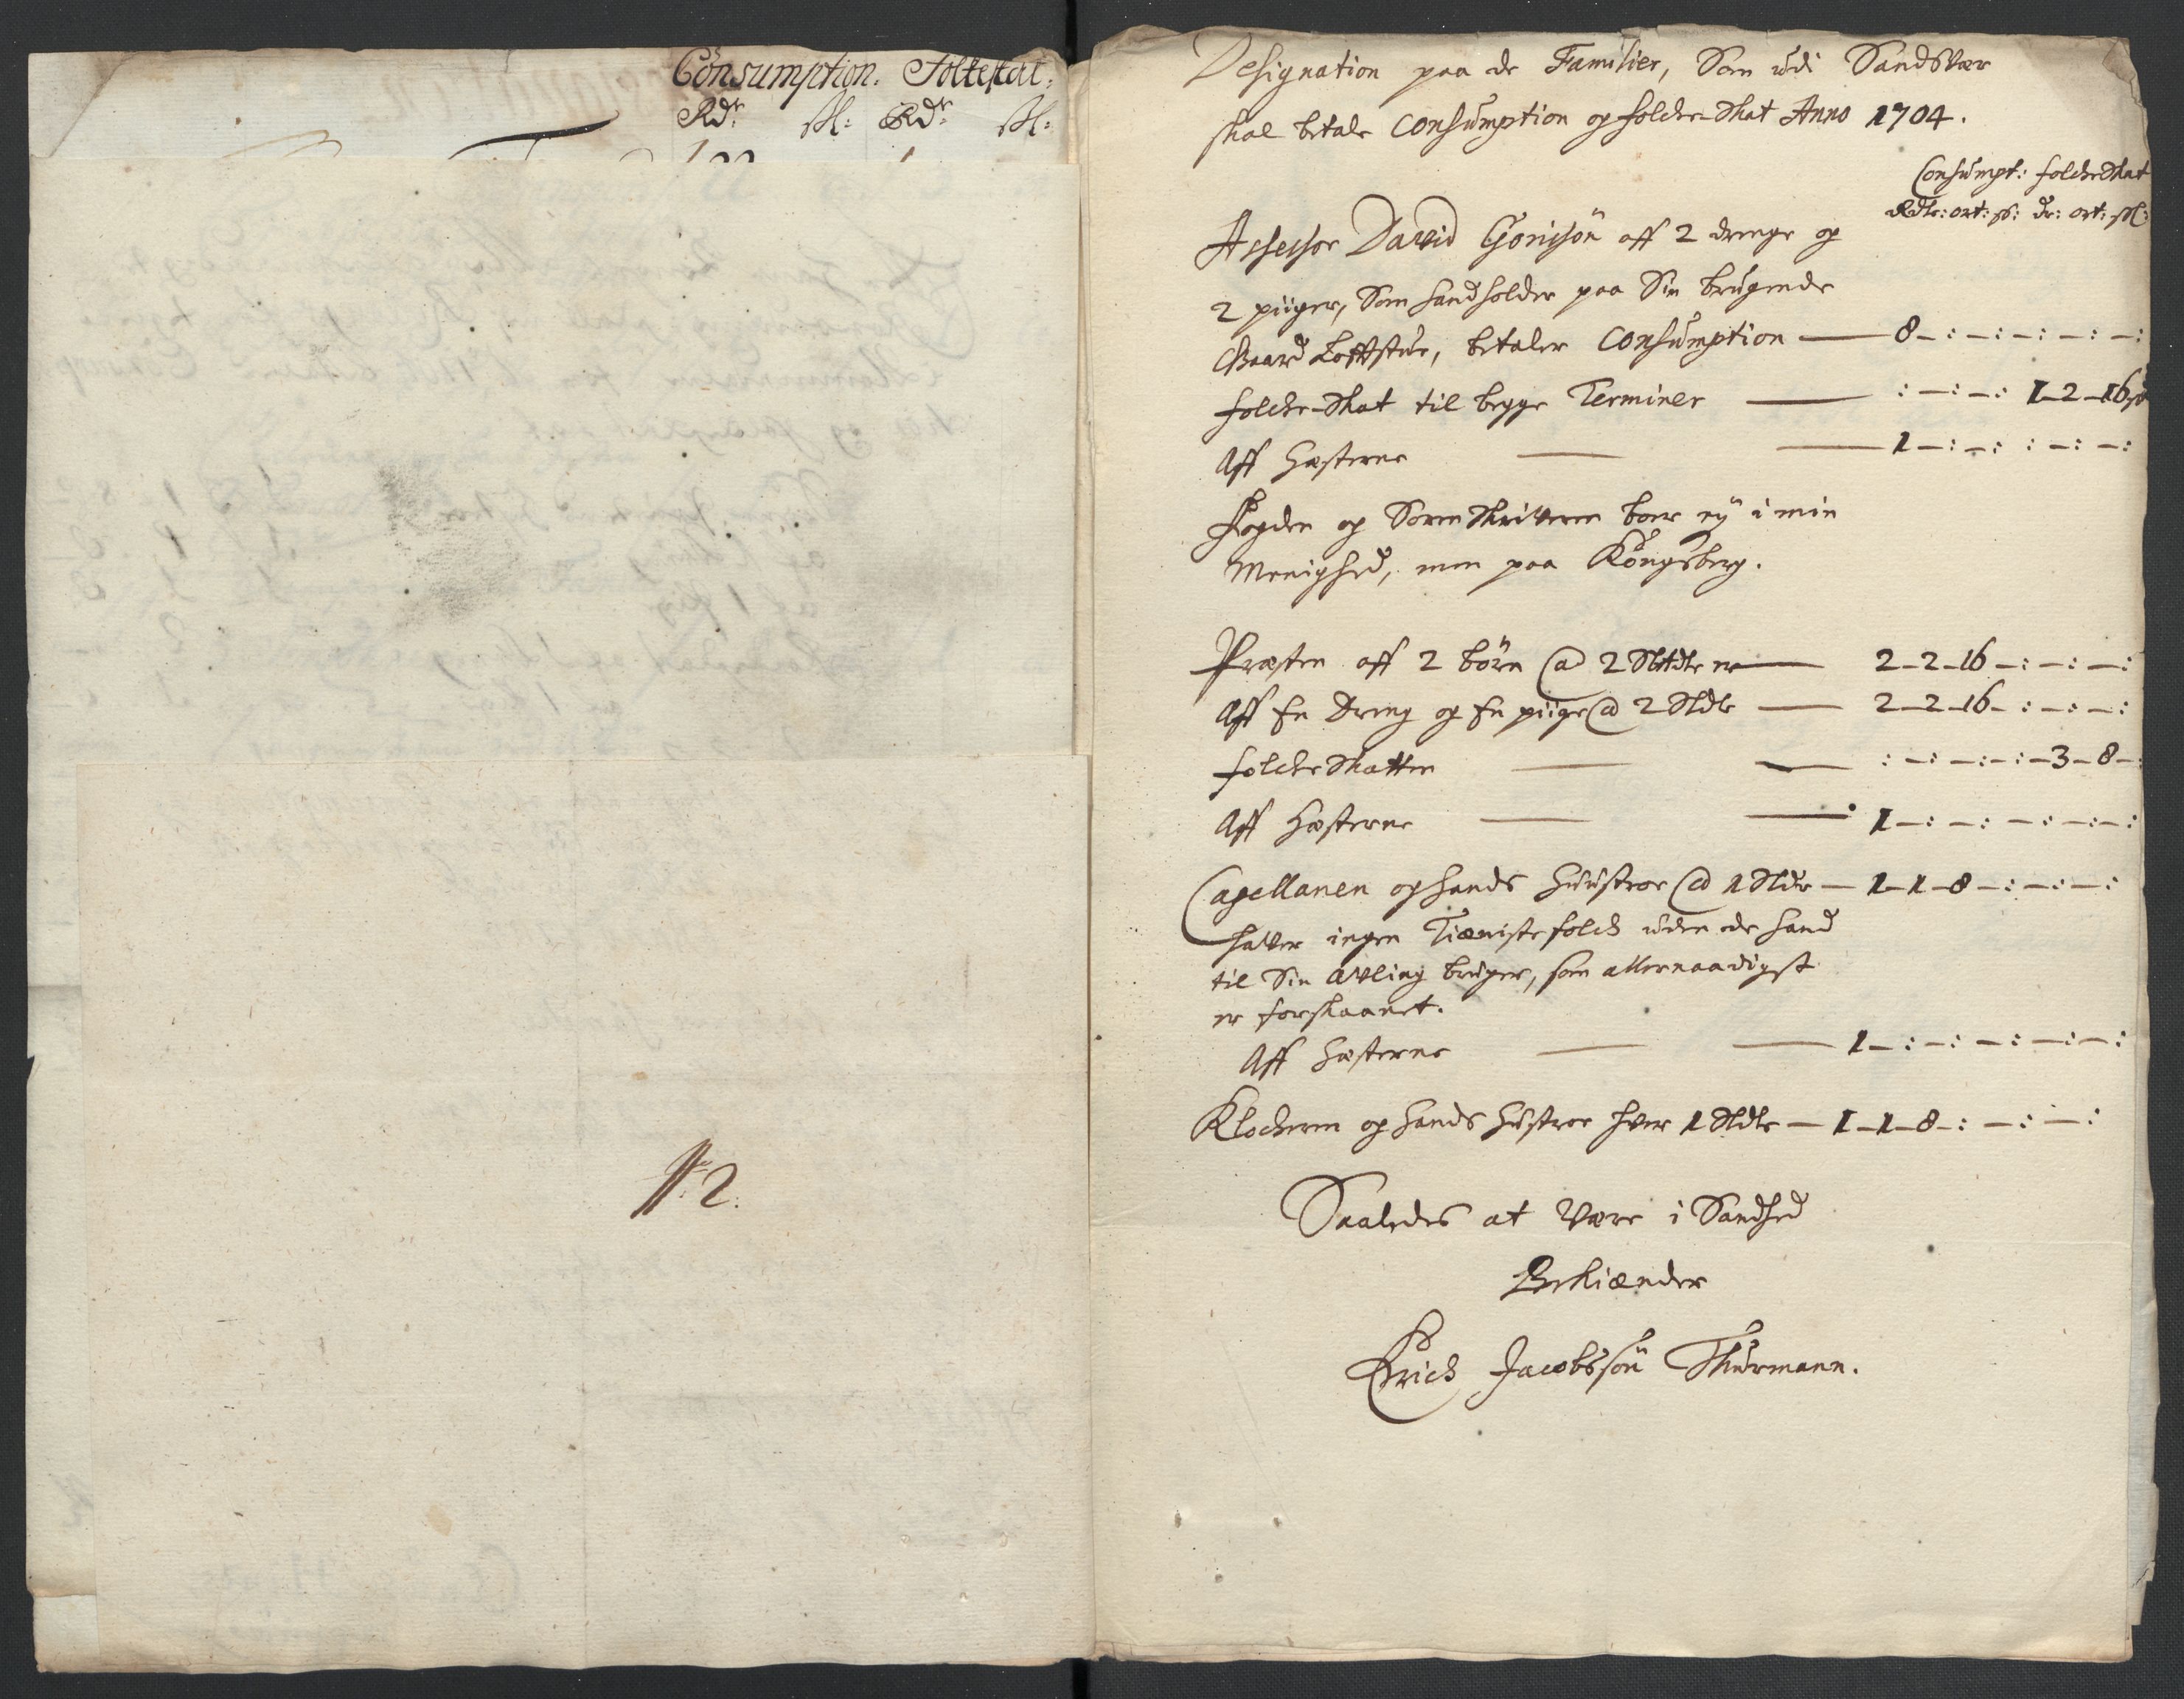 Consumption. Folkeskat:
Rdr: sk: Rdr: sk:
No 2.
Designation paa de Familier, Som udi Sandsvær
skal betale Consumption og folcke-Skat Anno 1704.
Consumpt: folckeskat
Rdlr: ort: sk: dr: ort: sk:
Assessor David Gorisøn aff 2 drenge og
2 piiger, Som hand holder paa Sin brugende
Gaard Loftstue, betaler Consumption — 8 - : - : - : - : - :
folcke-Skat til begge Terminer — : - : - : 1 - 2 - 16
Aff Hæsterne — 1 - : - : : - : - :
Fogden og Sorenskriveren boer ey i min
Menighed, men paa Kongsberg.
Præsten aff 2 børn @ 2 Sletdlr — 2 - 2 - 16 - : - : - :
Aff En Dreng og En piige @ 2 Sldlr — 2 - 2 - 16 - : - : - :
folckeskatten — : - : - : - : - 3 - 8 -
Aff Hæsterne — 1 - : - : - : - : - :
Capellanen og hands Huustroe @ 1 Sldr — 1 - 1 - 8 - : - : - :
haver ingen Tiænistefolck uden de hand
til Sin Avling bruger, som allernaadigst
er forskaanet.
Aff Hæsterne — 1 - : - : - : - : - :
Klockeren og hands Hustroe hver 1 Sldlr — 1 - 1 - 8 - : - : - :
Saaledes at være i Sandhed
Bekiænder
Erick Jacobssøn Thurmann.